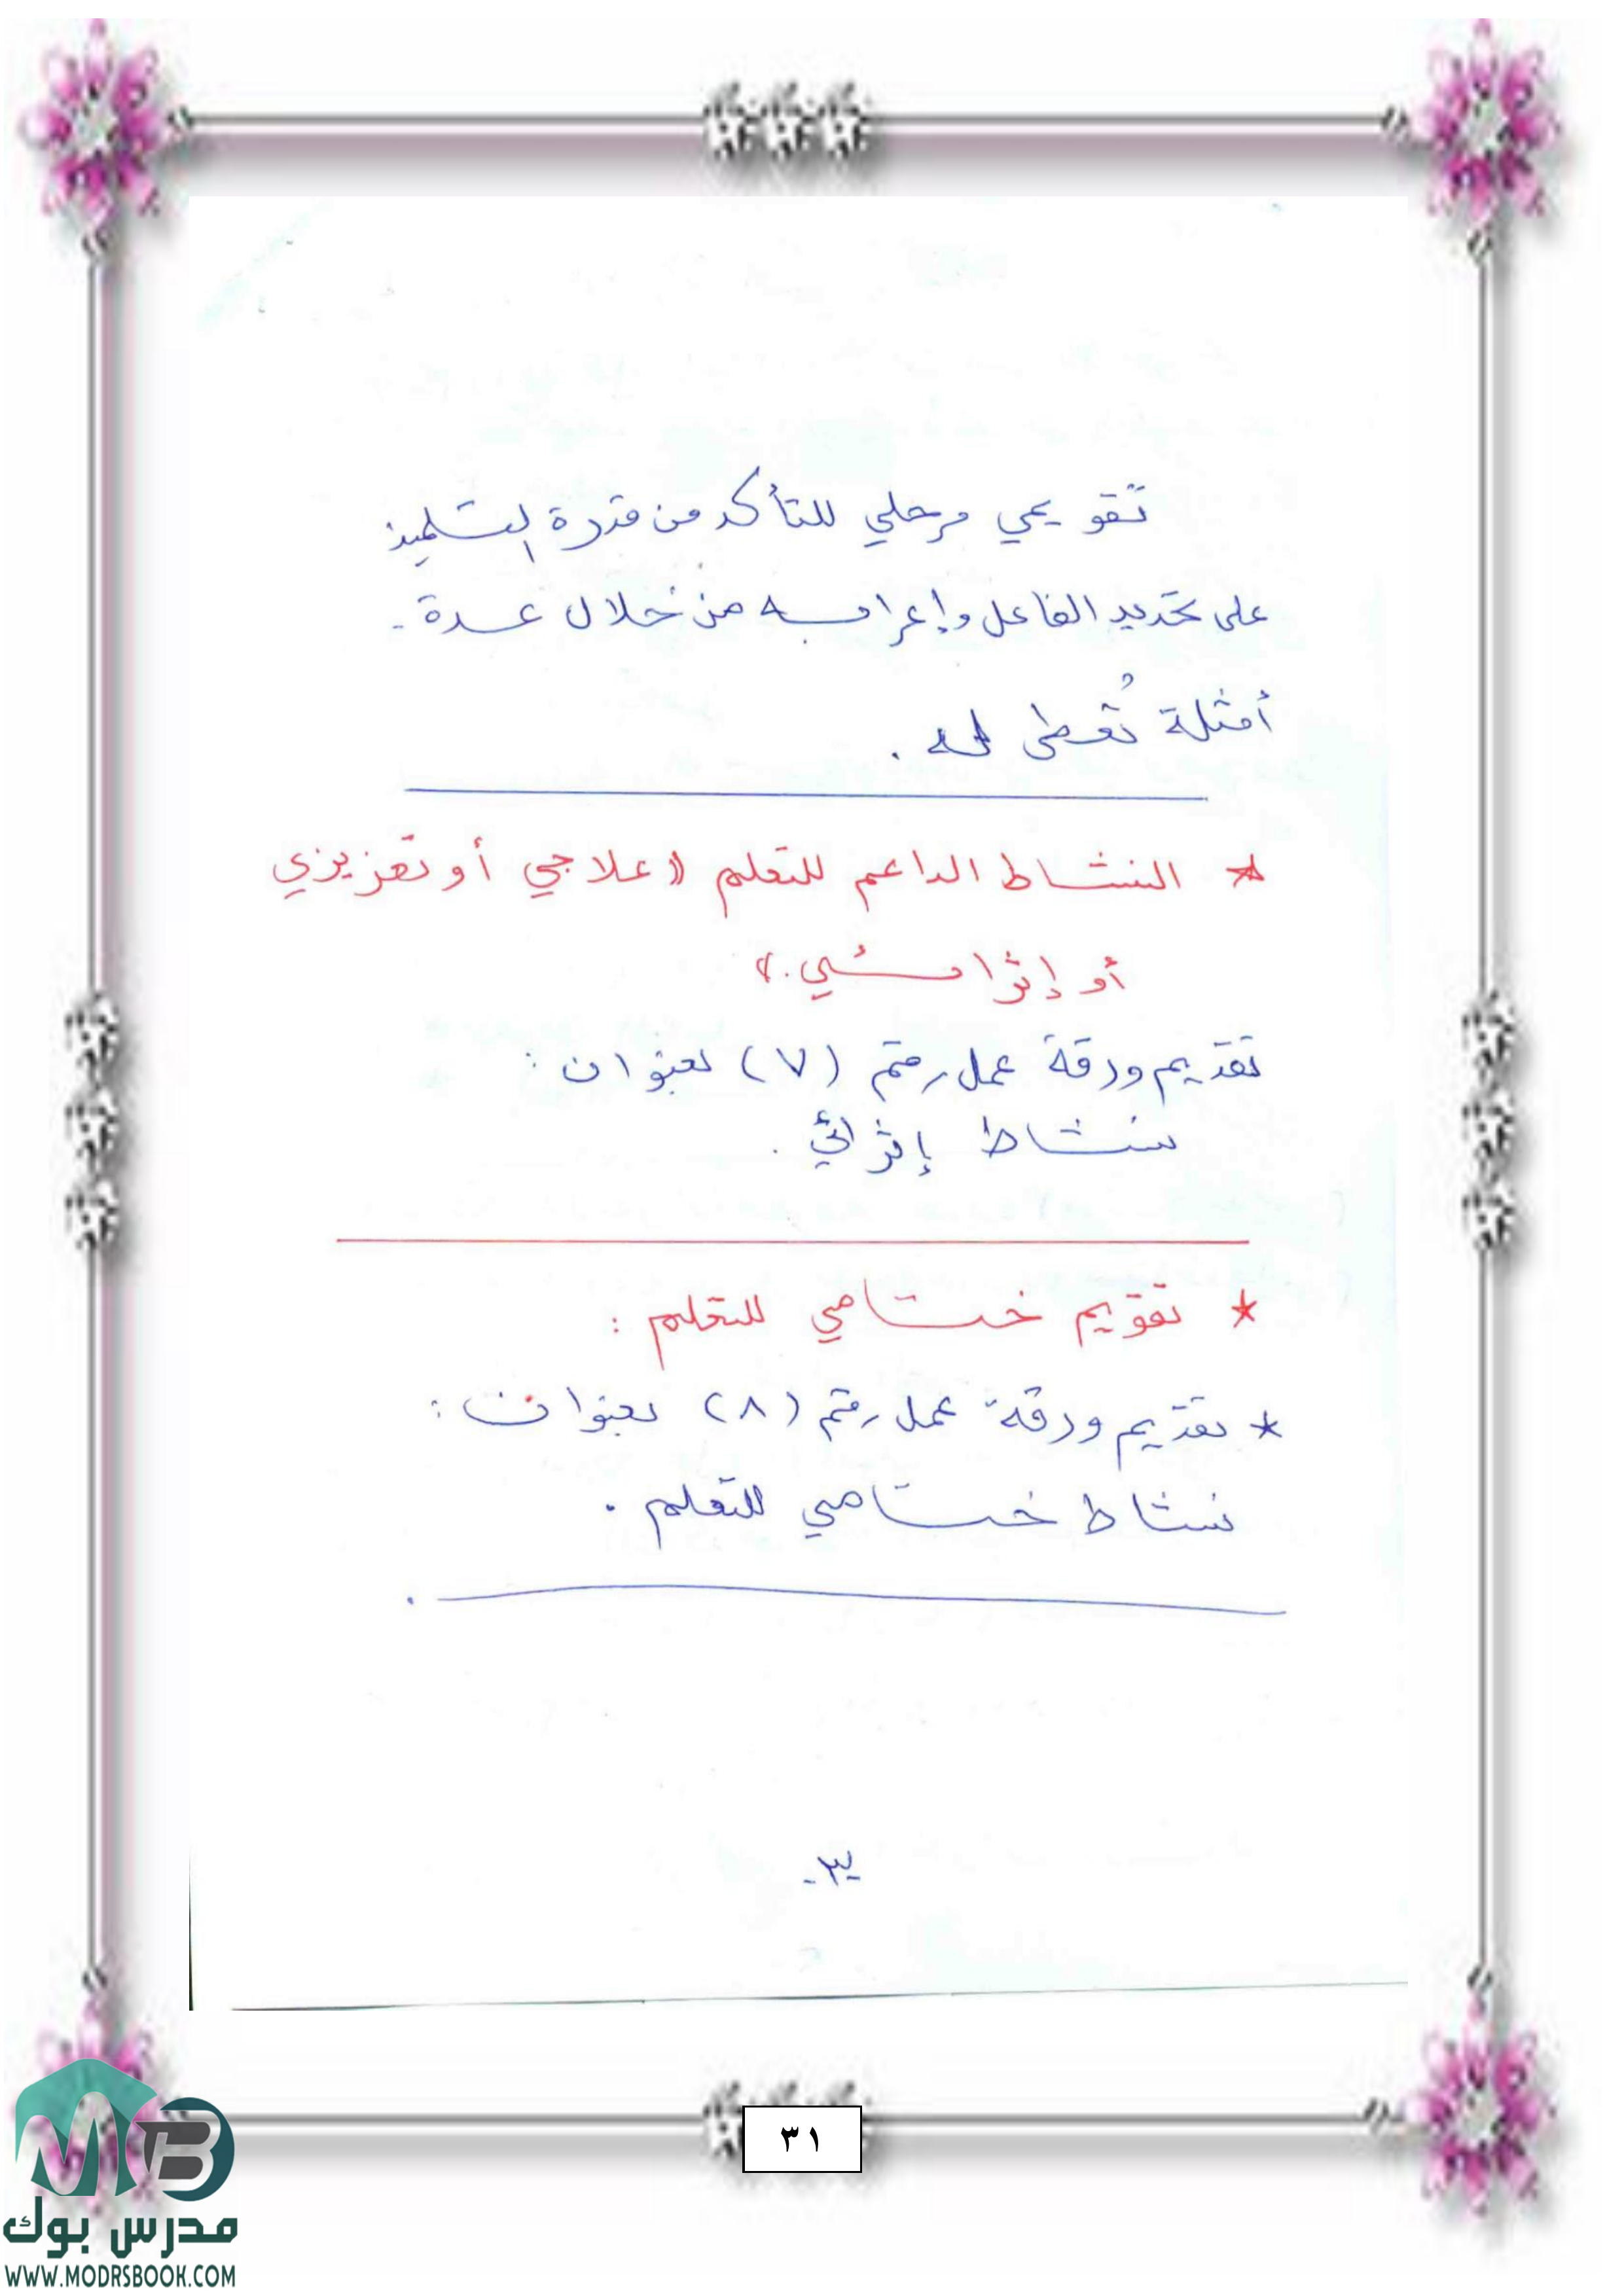 تقويمي مرحلي للتأكد من قدرة التلميذ
على تحديد الفاعل وإعرابه من خلال عدة -
أمثلة تُعطى له .
* النشاط الداعم للتعلم (( علاجي أو تعزيزي
أو إثرائي . ))
تقديم ورقة عمل رقم (٧) بعنوان :
نشاط إثرائي .
* تقويم ختامي للتعلم :
* تقديم ورقة عمل رقم (٨) بعنوان :
نشاط ختامي للتعلم .
-٣-
٣١
MB
مدرس بوك
WWW.MODRSBOOK.COM